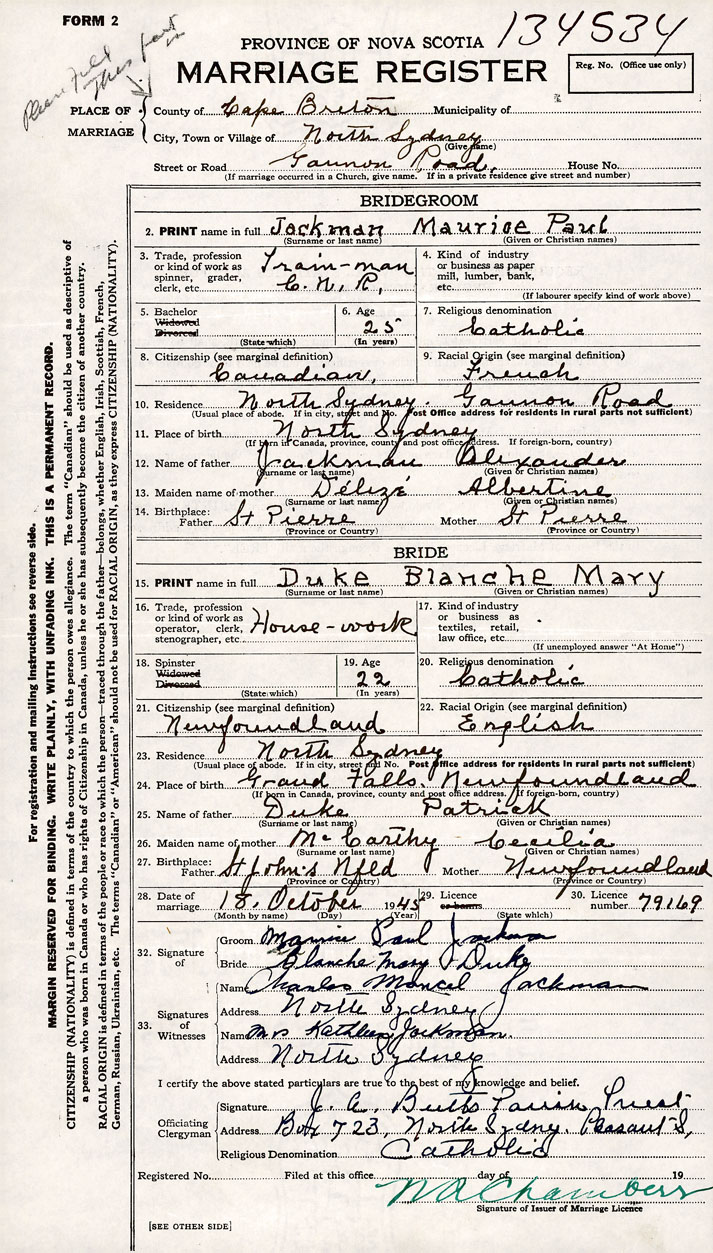 FORM 2
134534
Please fill this part in
PROVINCE OF NOVA SCOTIA
MARRIAGE REGISTER
Reg. No. (Office use only)
PLACE OF MARRIAGE
County of Cape Breton Municipality of
City, Town or Village of North Sydney
(Give name)
Street or Road Gannon Road, House No.
(If marriage occurred in a Church, give name. If in a private residence give street and number)
BRIDEGROOM
2. PRINT name in full Jackman Maurice Paul
(Surname or last name) (Given or Christian names)
3. Trade, profession or kind of work as spinner, grader, clerk, etc. Train-man C.N.R.
4. Kind of industry or business as paper mill, lumber, bank, etc.
(If labourer specify kind of work above)
5. Bachelor Widowed Divorced (State which)
6. Age 25 (In years)
7. Religious denomination Catholic
8. Citizenship (see marginal definition) Canadian,
9. Racial Origin (see marginal definition) French
10. Residence North Sydney. Gannon Road
(Usual place of abode. If in city, street and No. Post Office address for residents in rural parts not sufficient)
11. Place of birth North Sydney
(If born in Canada, province, county and post office address. If foreign-born, country)
12. Name of father Jackman Alexander
(Surname or last name) (Given or Christian names)
13. Maiden name of mother Délizé Albertine
(Surname or last name) (Given or Christian names)
14. Birthplace: Father St Pierre Mother St Pierre
(Province or Country) (Province or Country)
BRIDE
15. PRINT name in full Duke Blanche Mary
(Surname or last name) (Given or Christian names)
16. Trade, profession or kind of work as operator, clerk, stenographer, etc. House-work
17. Kind of industry or business as textiles, retail, law office, etc
(If unemployed answer "At Home")
18. Spinster Widowed Divorced (State which)
19. Age 22 (In years)
20. Religious denomination Catholic
21. Citizenship (see marginal definition) Newfoundland
22. Racial Origin (see marginal definition) English
23. Residence North Sydney
(Usual place of abode. If in city, street and No. Post Office address for residents in rural parts not sufficient)
24. Place of birth Grand Falls. Newfoundland
(If born in Canada, province, county and post office address. If foreign-born, country)
25. Name of father Duke Patrick
(Surname or last name) (Given or Christian names)
26. Maiden name of mother McCarthy Cecilia
(Surname or last name) (Given or Christian names)
27. Birthplace: Father St John's Nfld Mother Newfoundland
(Province or Country) (Province or Country)
28. Date of marriage 18. October 1945
(Month by name) (Day) (Year)
29. Licence or banns (State which)
30. Licence number 79169
32. Signature of
Groom Maurice Paul Jackman
Bride Blanche Mary Duke
33. Signatures of Witnesses
Name Charles Mancel Jackman
Address North Sydney
Name Mrs Kathleen Jackman.
Address North Sydney
I certify the above stated particulars are true to the best of my knowledge and belief.
Officiating Clergyman
Signature J. A. Butts Parish Priest
Address Box 723, North Sydney. Pleasant S,
Religious Denomination Catholic
Registered No. Filed at this office day of 19
W R Chambers
Signature of Issuer of Marriage Licence
[SEE OTHER SIDE]
For registration and mailing instructions see reverse side.
MARGIN RESERVED FOR BINDING. WRITE PLAINLY, WITH UNFADING INK. THIS IS A PERMANENT RECORD.
CITIZENSHIP (NATIONALITY) is defined in terms of the country to which the person owes allegiance. The term "Canadian" should be used as descriptive of
a person who was born in Canada or who has rights of Citizenship in Canada, unless he or she has subsequently become the citizen of another country.
RACIAL ORIGIN is defined in terms of the people or race to which the person—traced through the father—belongs, whether English, Irish, Scottish, French,
German, Russian, Ukrainian, etc. The terms "Canadian" or "American" should not be used for RACIAL ORIGIN, as they express CITIZENSHIP (NATIONALITY).